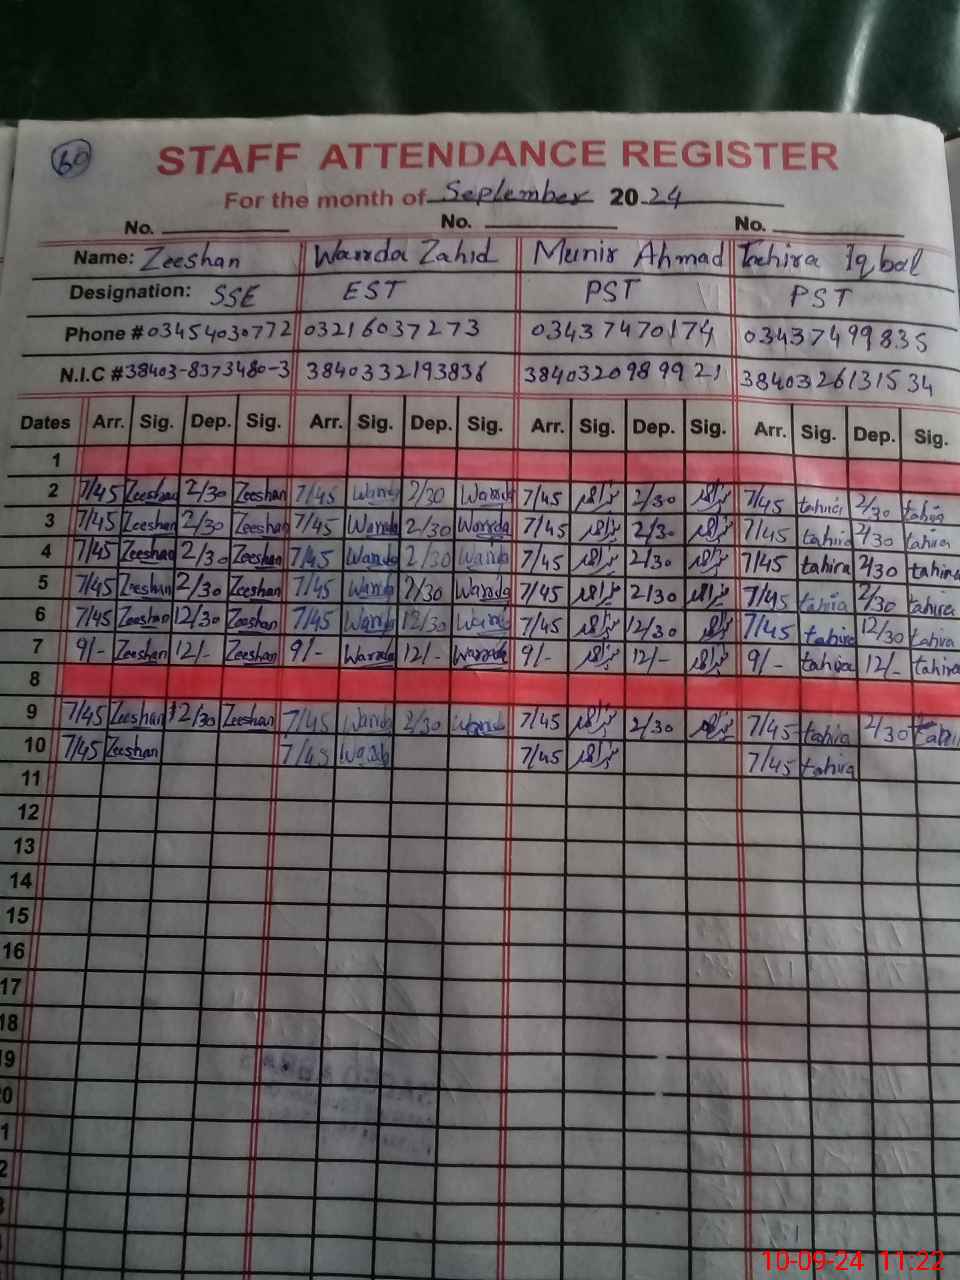 60
STAFF ATTENDANCE REGISTER
For the month of September 2024
No. No. No.
Name: Zeeshan Warda Zahid Munir Ahmad Tahira Iqbal
Designation: SSE EST PST PST
Phone # 03454030772 03216037273 03437470174 03437499835
N.I.C # 38403-8373480-3 3840332193836 3840320989921 3840326131534
Dates Arr. Sig. Dep. Sig. Arr. Sig. Dep. Sig. Arr. Sig. Dep. Sig. Arr. Sig. Dep. Sig.
1
2 7/45 Zeeshan 2/30 Zeeshan 7/45 Warda 2/30 Warda 7/45 2/30 7/45 tahira 2/30 tahira
3 7/45 Zeeshan 2/30 Zeeshan 7/45 Warda 2/30 Warda 7/45 2/30 7/45 tahira 2/30 tahira
4 7/45 Zeeshan 2/30 Zeeshan 7/45 Warda 2/30 Warda 7/45 2/30 7/45 tahira 2/30 tahira
5 7/45 Zeeshan 2/30 Zeeshan 7/45 Warda 2/30 Warda 7/45 2/30 7/45 tahira 2/30 tahira
6 7/45 Zeeshan 12/30 Zeeshan 7/45 Warda 12/30 Warda 7/45 12/30 7/45 tahira 12/30 tahira
7 9/- Zeeshan 12/- Zeeshan 9/- Warda 12/- Warda 9/- 12/- 9/- tahira 12/- tahira
8
9 7/45 Zeeshan 2/30 Zeeshan 7/45 Warda 2/30 Warda 7/45 2/30 7/45 tahira 2/30 tahira
10 7/45 Zeeshan 7/45 Warda 7/45 7/45 tahira
11
12
13
14
15
16
17
18
19
10-09-24 11:22